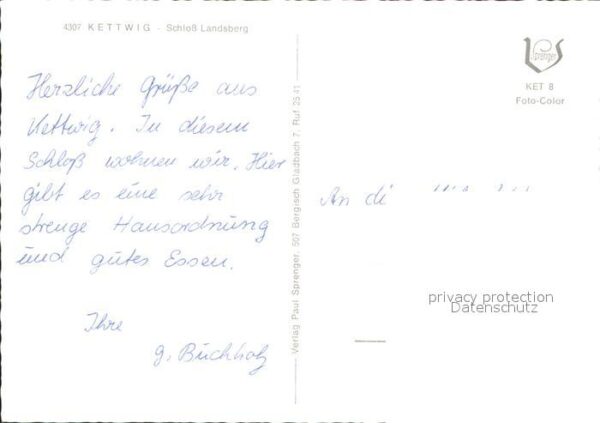 4307 KETTWIG - Schloß Landsberg
Herzliche Grüße aus
Kettwig. In diesem
Schloß wohnen wir. Hier
gibt es eine sehr
strenge Hausordnung
und gutes Essen.
Ihre
g. Buchholz
Verlag Paul Sprenger, 507 Bergisch Gladbach 7, Ruf 3541
Sprenger
KET 8
Foto-Color
An di
privacy protection
Datenschutz